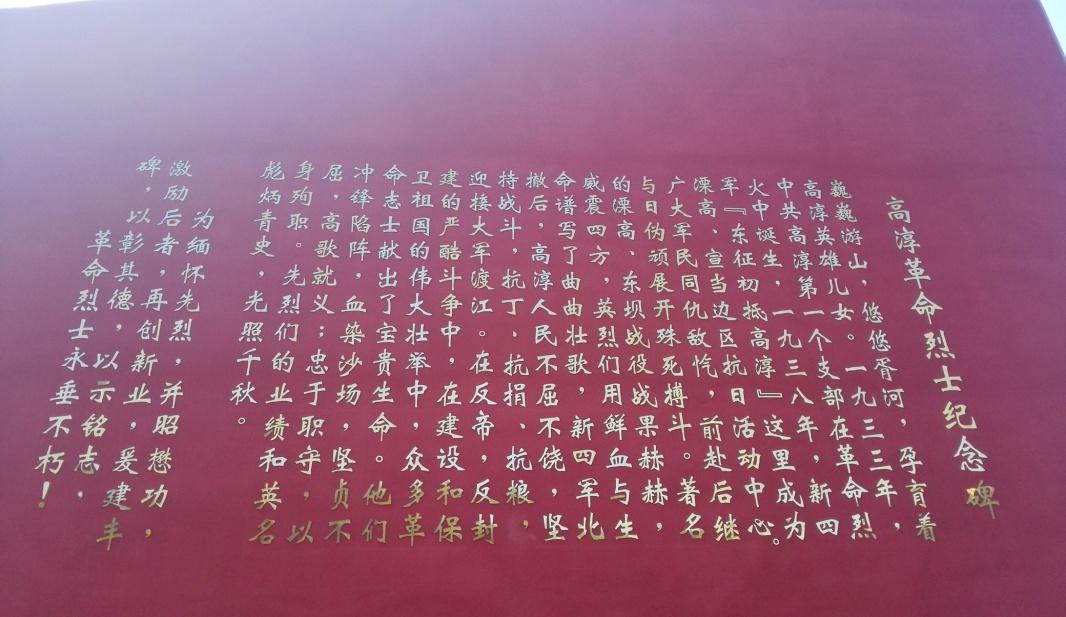 高淳革命烈士纪念碑
巍巍游山，悠悠胥河，孕育着
高淳英雄儿女。一九三三年，
中共高淳第一个支部在革命烈
火中诞生，一九三八年，新四
军『东征初抵高淳』这里成为
溧高、宣当边区抗日活动中心。
广大军民同仇敌忾，前赴后继
与日伪顽展开殊死搏斗。著名
的溧高、东坝战役战果赫赫，
威震四方，英烈们用鲜血与生
命谱写了曲曲壮歌，新四军北
撤后，高淳人民不屈不饶，坚
持战斗，抗丁、抗捐、抗粮，
迎接大军渡江。在反帝，反封
建的严酷斗争中，在建设和保
卫祖国的伟大壮举中，众多革
命志士献出了宝贵生命。他们
冲锋陷阵，血染沙场，坚贞不
屈，高歌就义；忠于职守，以
身殉职。先烈们的业绩和英名
彪炳青史，光照千秋。
为缅怀先烈，并昭懋功，
激励后者，再创新业，爰建丰
碑，以彰其德，以示铭志，
革命烈士永垂不朽！